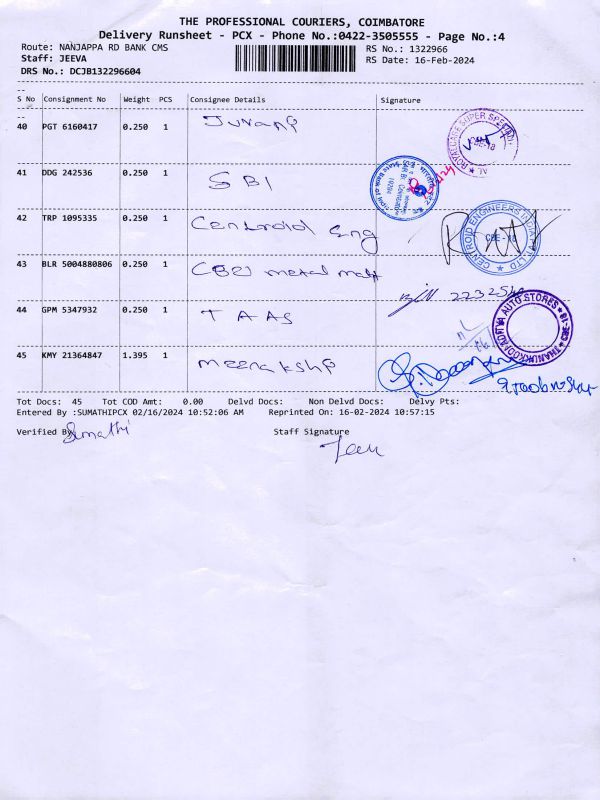 THE PROFESSIONAL COURIERS, COIMBATORE
Delivery Runsheet - PCX - Phone No.:0422-3505555 - Page No.:4
Route: NANJAPPA RD BANK CMS
RS No.: 1322966
Staff: JEEVA
RS Date: 16-Feb-2024
DRS No.: DCJB132296604
S No Consignment No Weight PCS Consignee Details Signature
40 PGT 6160417 0.250 1
41 DDG 242536 0.250 1 SBI
42 TRP 1095335 0.250 1 Centroid Eng
CENTROID ENGINEERS INDIA PVT LTD
43 BLR 5004880806 0.250 1 CBE metal matt
44 GPM 5347932 0.250 1 TAAS
AUTO STORES
45 KMY 21364847 1.395 1 meenakshi
Tot Docs: 45 Tot COD Amt: 0.00 Delvd Docs: Non Delvd Docs: Delvy Pts:
Entered By :SUMATHIPCX 02/16/2024 10:52:06 AM Reprinted On: 16-02-2024 10:57:15
Verified By Sumathi Staff Signature